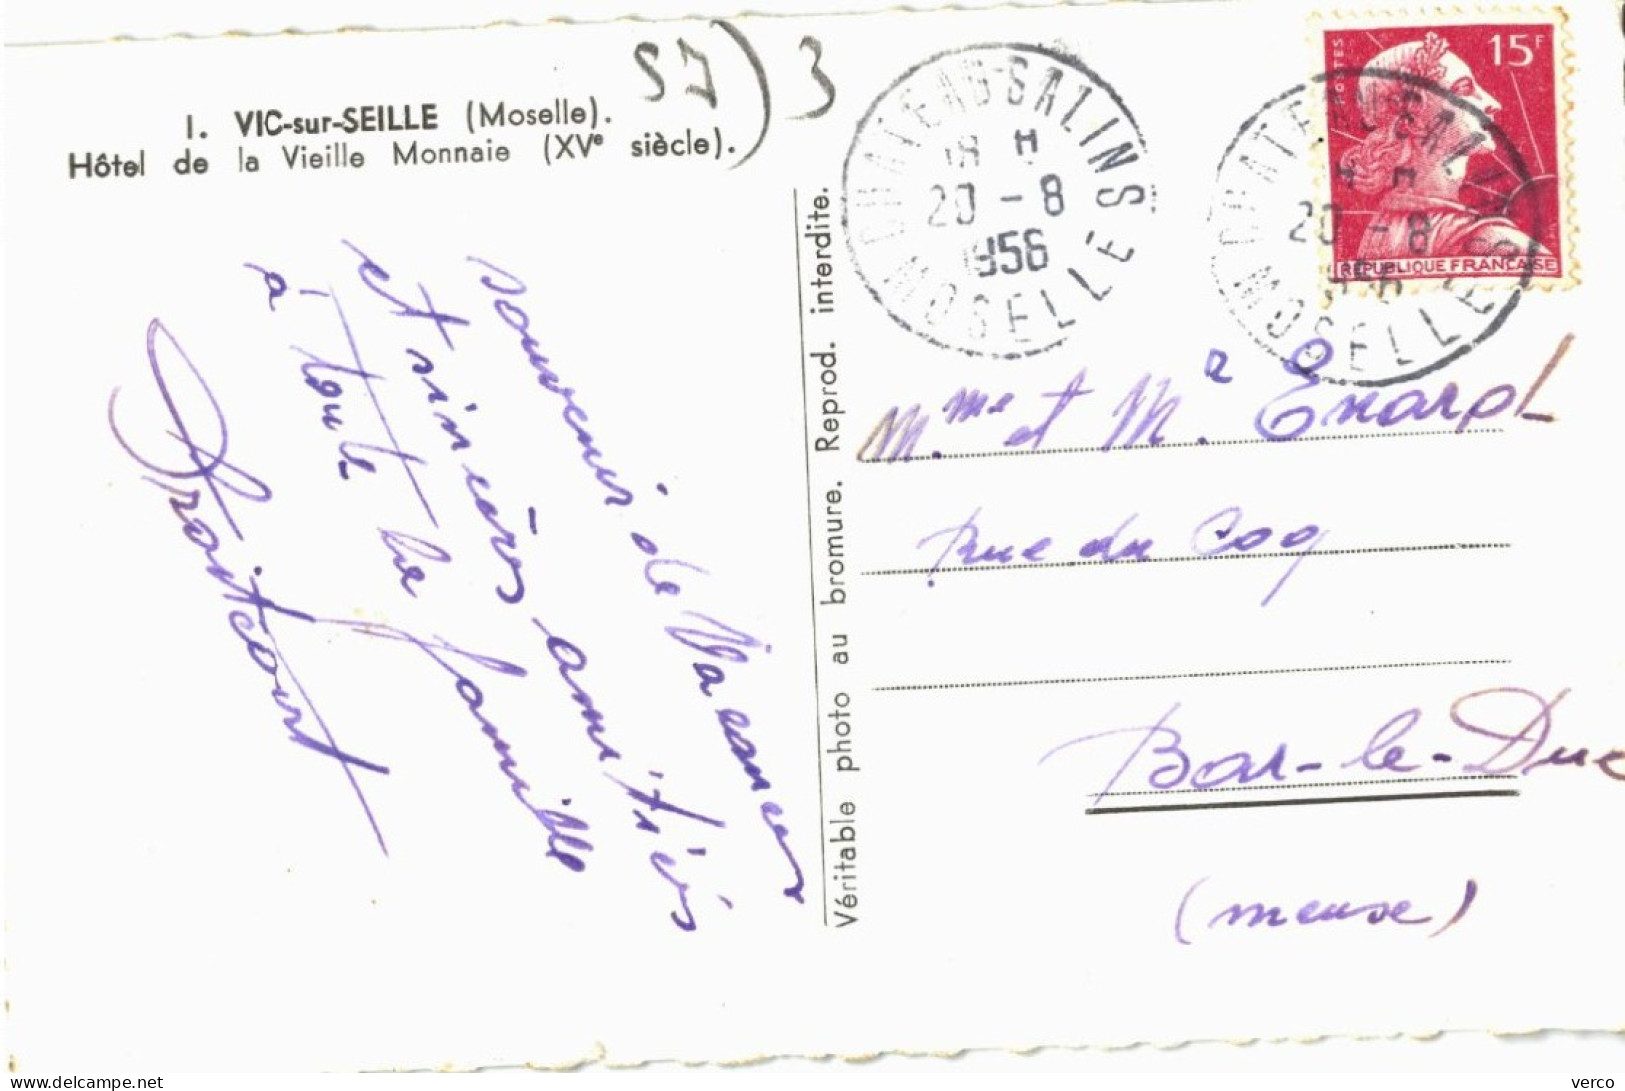 I. VIC-sur-SEILLE (Moselle).
Hôtel de la Vieille Monnaie (XVe siècle).
57) 3
souvenir de Vacances
et sincères amitiés
à toute la famille
Droitcourt
Véritable photo au bromure. Reprod. interdite.
CHATEAU-SALINS
18 H
20 - 8
1956
MOSELLE
CHATEAU-SALINS
18 H
20 - 8
1956
MOSELLE
POSTES
15F
REPUBLIQUE FRANCAISE
Mme et Mr. Enard
Rue du Coq
Bar-le-Duc
(meuse)
delcampe.net
verco